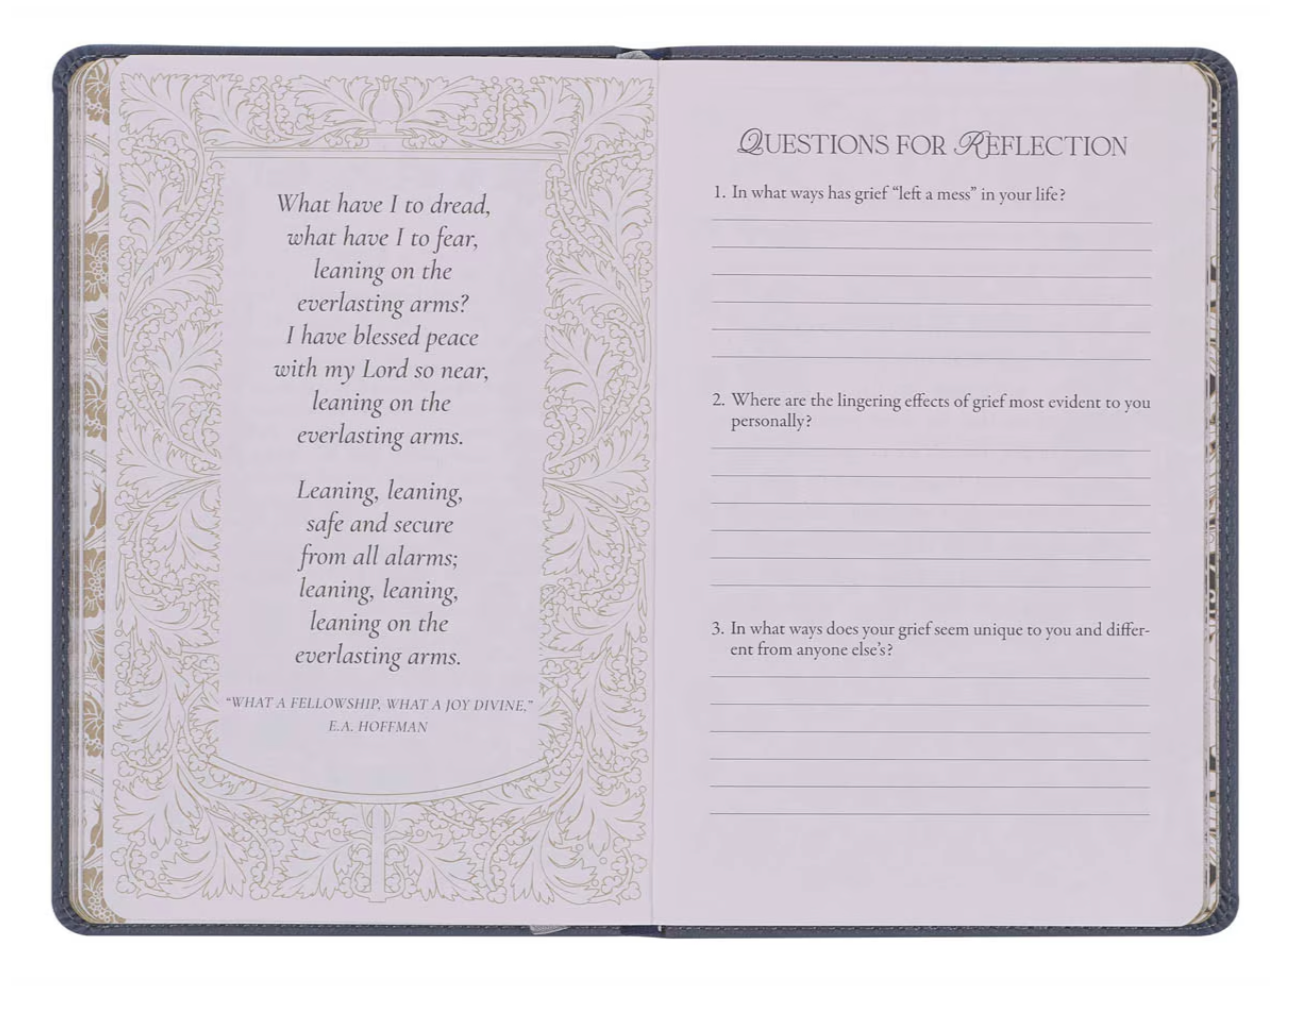 What have I to dread,
what have I to fear,
leaning on the
everlasting arms?
I have blessed peace
with my Lord so near,
leaning on the
everlasting arms.
Leaning, leaning,
safe and secure
from all alarms;
leaning, leaning,
leaning on the
everlasting arms.
“WHAT A FELLOWSHIP, WHAT A JOY DIVINE,”
E.A. HOFFMAN
QUESTIONS FOR REFLECTION
1. In what ways has grief “left a mess” in your life?
2. Where are the lingering effects of grief most evident to you
personally?
3. In what ways does your grief seem unique to you and differ-
ent from anyone else’s?